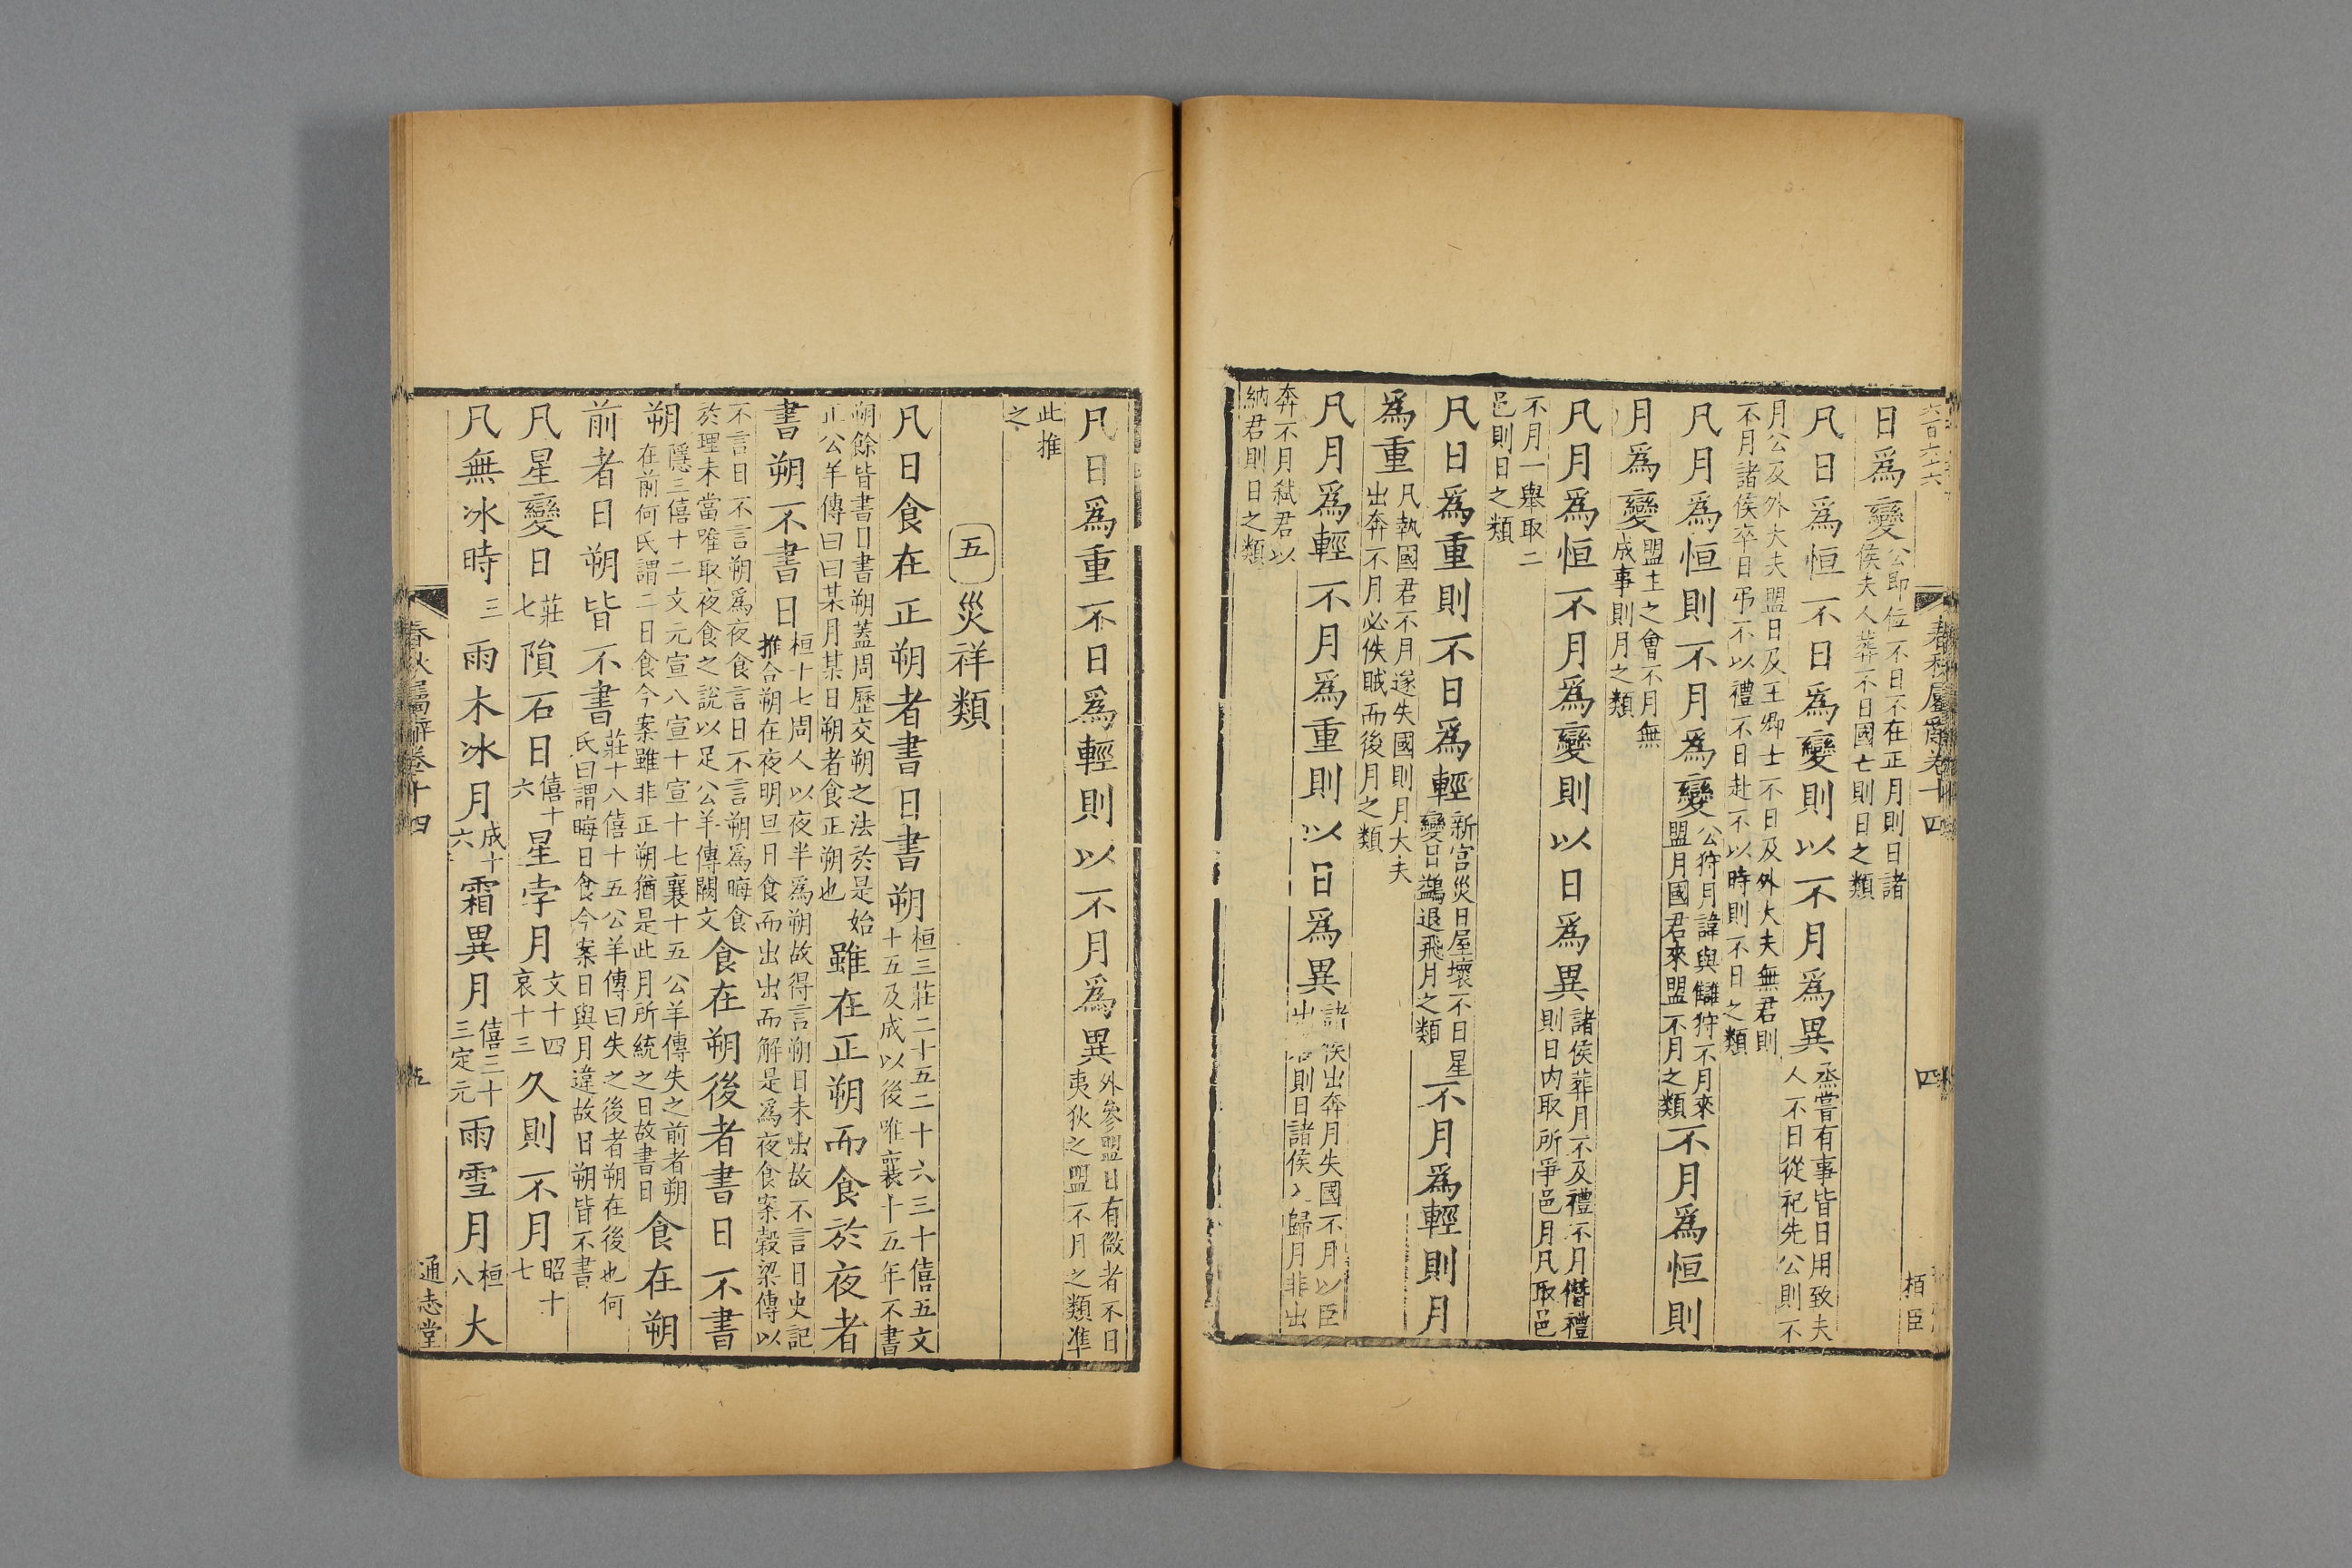 六百六六
春秋屬辭卷十四
四
栢臣
日爲變公即位不日不在正月則日諸侯夫人葬不日國亡則日之類
凡日爲恒不日爲變則以不月爲異烝嘗有事皆日用致夫人不日從祀先公則不
月公及外大夫盟日及王卿士不日及外大夫無君則不月諸侯卒日弔不以禮不日赴不以時則不日之類
凡月爲恒則不月爲變公狩月諱與讎狩不月來盟月國君來盟不月之類不月爲恒則
月爲變盟主之會不月無成事則月之類
凡月爲恒不月爲變則以日爲異諸侯葬月不及禮不月僭禮則日内取所爭邑月凡取邑
不月一舉取二邑則日之類
凡日爲重則不日爲輕新宮災日屋壞不日星變日鷁退飛月之類不月爲輕則月
爲重凡執國君不月遂失國則月大夫出奔不月必佚賊而後月之類
凡月爲輕不月爲重則以日爲異諸侯出奔月失國不月以臣出則日諸侯入歸月非出
奔不月弑君以納君則日之類
凡日爲重不日爲輕則以不月爲異外參盟日有微者不日夷狄之盟不月之類準
此推之
五災祥類
凡日食在正朔者書日書朔桓三莊二十五二十六三十僖五文十五及成以後唯襄十五年不書
朔餘皆書日書朔蓋周歷交朔之法於是始正公羊傳曰曰某月某日朔者食正朔也雖在正朔而食於夜者
書朔不書日桓十七周人以夜半爲朔故得言朔日未出故不言日史記推合朔在夜明旦日食而出出而解是爲夜食案穀梁傳以
不言日不言朔爲夜食言日不言朔爲晦食於理未當唯取夜食之說以足公羊傳闕文食在朔後者書日不書
朔隱三僖十二文元宣八宣十宣十七襄十五公羊傳失之前者朔在前何氏謂二日食今案雖非正朔猶是此月所統之日故書日食在朔
前者日朔皆不書莊十八僖十五公羊傳曰失之後者朔在後也何氏曰謂晦日食今案日與月違故日朔皆不書
凡星變日莊七隕石日僖十六星孛月文十四哀十三久則不月昭十七
凡無冰時三雨木冰月成十六霜異月僖三十三定元雨雪月桓八大
春秋屬辭卷十四
五
通志堂